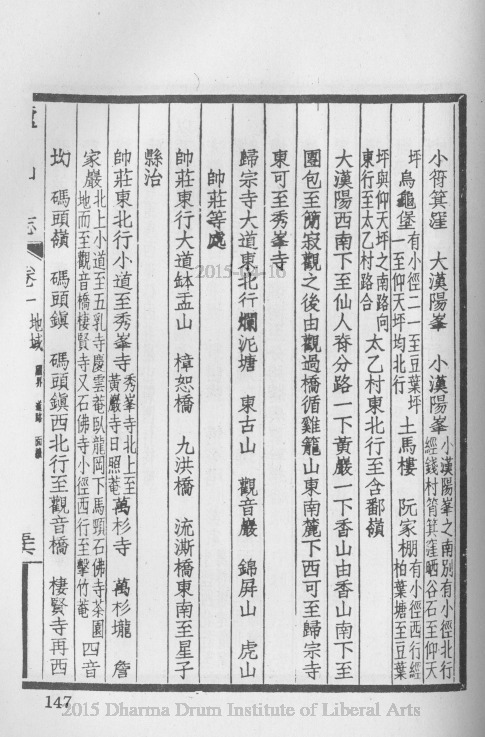 小筲箕漥　大漢陽峯　小漢陽峯小漢陽峯之南別有小徑北行經錢村筲箕漥晒谷石至仰天
坪　烏龜堡有小徑二一至豆葉坪一至仰天坪均北行　土馬樓　阮家棚有小徑西行經柏葉塘至豆葉
坪與仰天坪之南路向東行至太乙村路合　太乙村東北行至含鄱嶺
大漢陽西南下至仙人脊分路一下黃巖一下香山由香山南下至
團包至簡寂觀之後由觀過橋循雞籠山東南麓下西可至歸宗寺
東可至秀峯寺
歸宗寺大道東北行爛泥塘　東古山　觀音巖　錦屏山　虎山
帥莊等處
帥莊東行大道缽盂山　樟恕橋　九洪橋　流澌橋東南至星子
縣治
帥莊東北行小道至秀峯寺秀峯寺北上至黃巖寺日照菴　萬杉寺　萬杉壠　詹
家巖北上小道至五乳寺慶雲菴臥龍岡下馬頭石佛寺茶園地而至觀音橋棲賢寺又石佛寺小徑西行至擊竹菴　四音
㘭　碼頭嶺　碼頭鎮　碼頭鎮西北行至觀音橋　棲賢寺再西
山志　卷一　地域
147
2015-04-16
2015 Dharma Drum Institute of Liberal Arts